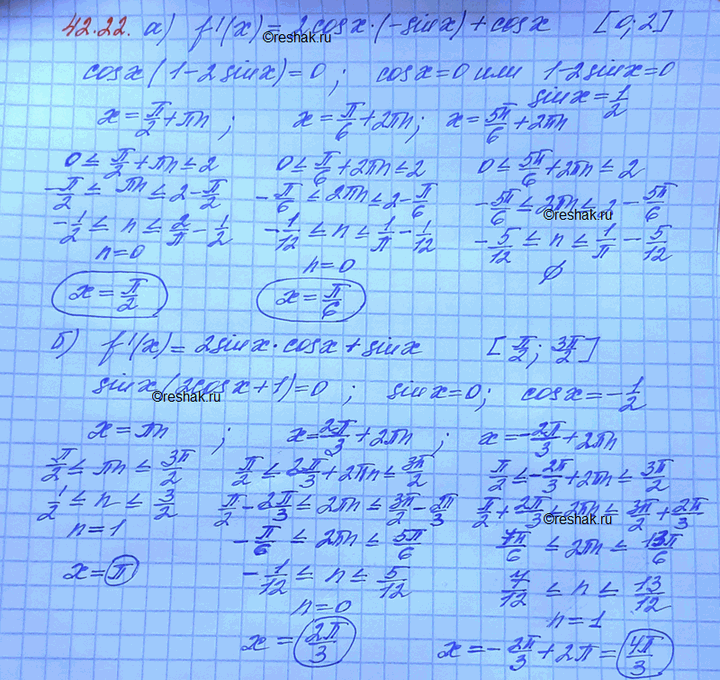 42.22. а) f'(x) = 2cosx·(-sinx) + cosx [0; 2]
cosx(1-2sinx)=0; cosx=0 или 1-2sinx=0
sinx=1/2
x=π/2+πn; x=π/6+2πn; x=5π/6+2πn
0≤π/2+πn≤2 0≤π/6+2πn≤2 0≤5π/6+2πn≤2
-π/2≤πn≤2-π/2 -π/6≤2πn≤2-π/6 -5π/6≤2πn≤2-5π/6
-1/2≤n≤2/π-1/2 -1/12≤n≤1/π-1/12 -5/12≤n≤1/π-5/12
n=0 n=0 ∅
x=π/2 x=π/6
б) f'(x)=2sinx·cosx+sinx [π/2; 3π/2]
sinx(2cosx+1)=0; sinx=0; cosx=-1/2
x=πn; x=2π/3+2πn; x=-2π/3+2πn
π/2≤πn≤3π/2 π/2≤2π/3+2πn≤3π/2 π/2≤-2π/3+2πn≤3π/2
1/2≤n≤3/2 π/2-2π/3≤2πn≤3π/2-2π/3 π/2+2π/3≤2πn≤3π/2+2π/3
n=1 -π/6≤2πn≤5π/6 7π/6≤2πn≤13π/6
x=π -1/12≤n≤5/12 7/12≤n≤13/12
n=0 n=1
x=2π/3 x=-2π/3+2π=4π/3
©reshak.ru
©reshak.ru
©reshak.ru
©reshak.ru
©reshak.ru